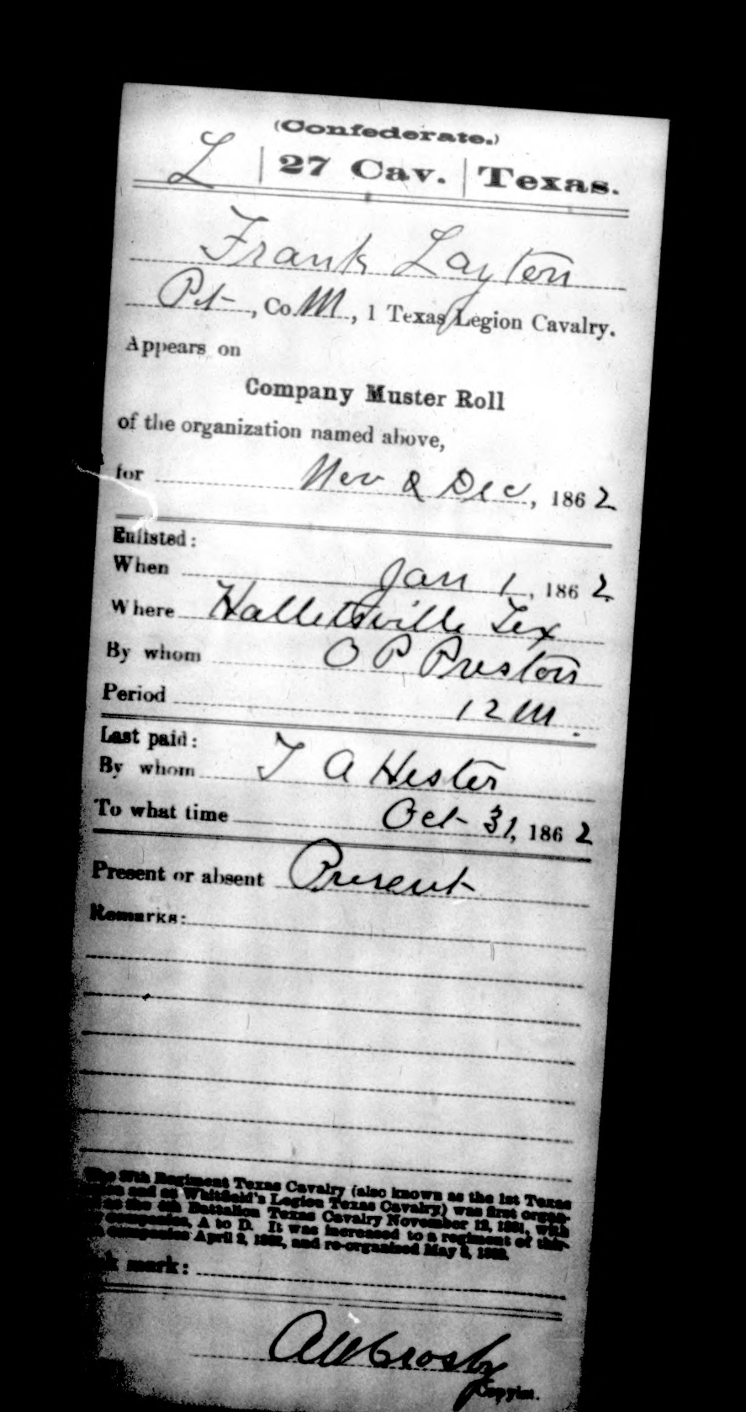 (Confederate.)
L | 27 Cav. | Texas.
Frank Layton
Pvt, Co. M, 1 Texas Legion Cavalry.
Appears on
Company Muster Roll
of the organization named above,
for Nov & Dec, 1862
Enlisted:
When Jan 1, 1862
Where Hallettsville Tex
By whom O P Preston
Period 12 M.
Last paid:
By whom T A Hester
To what time Oct 31, 1862
Present or absent Present
Remarks:
The 27th Regiment Texas Cavalry (also known as the 1st Texas
and as Whitfield's Legion Texas Cavalry) was first organ-
as the 4th Battalion Texas Cavalry November 12, 1861, with
companies, A to D. It was increased to a regiment of thir-
companies April 2, 1862, and re-organized May 8, 1862.
mark:
Crosby
Copyist.